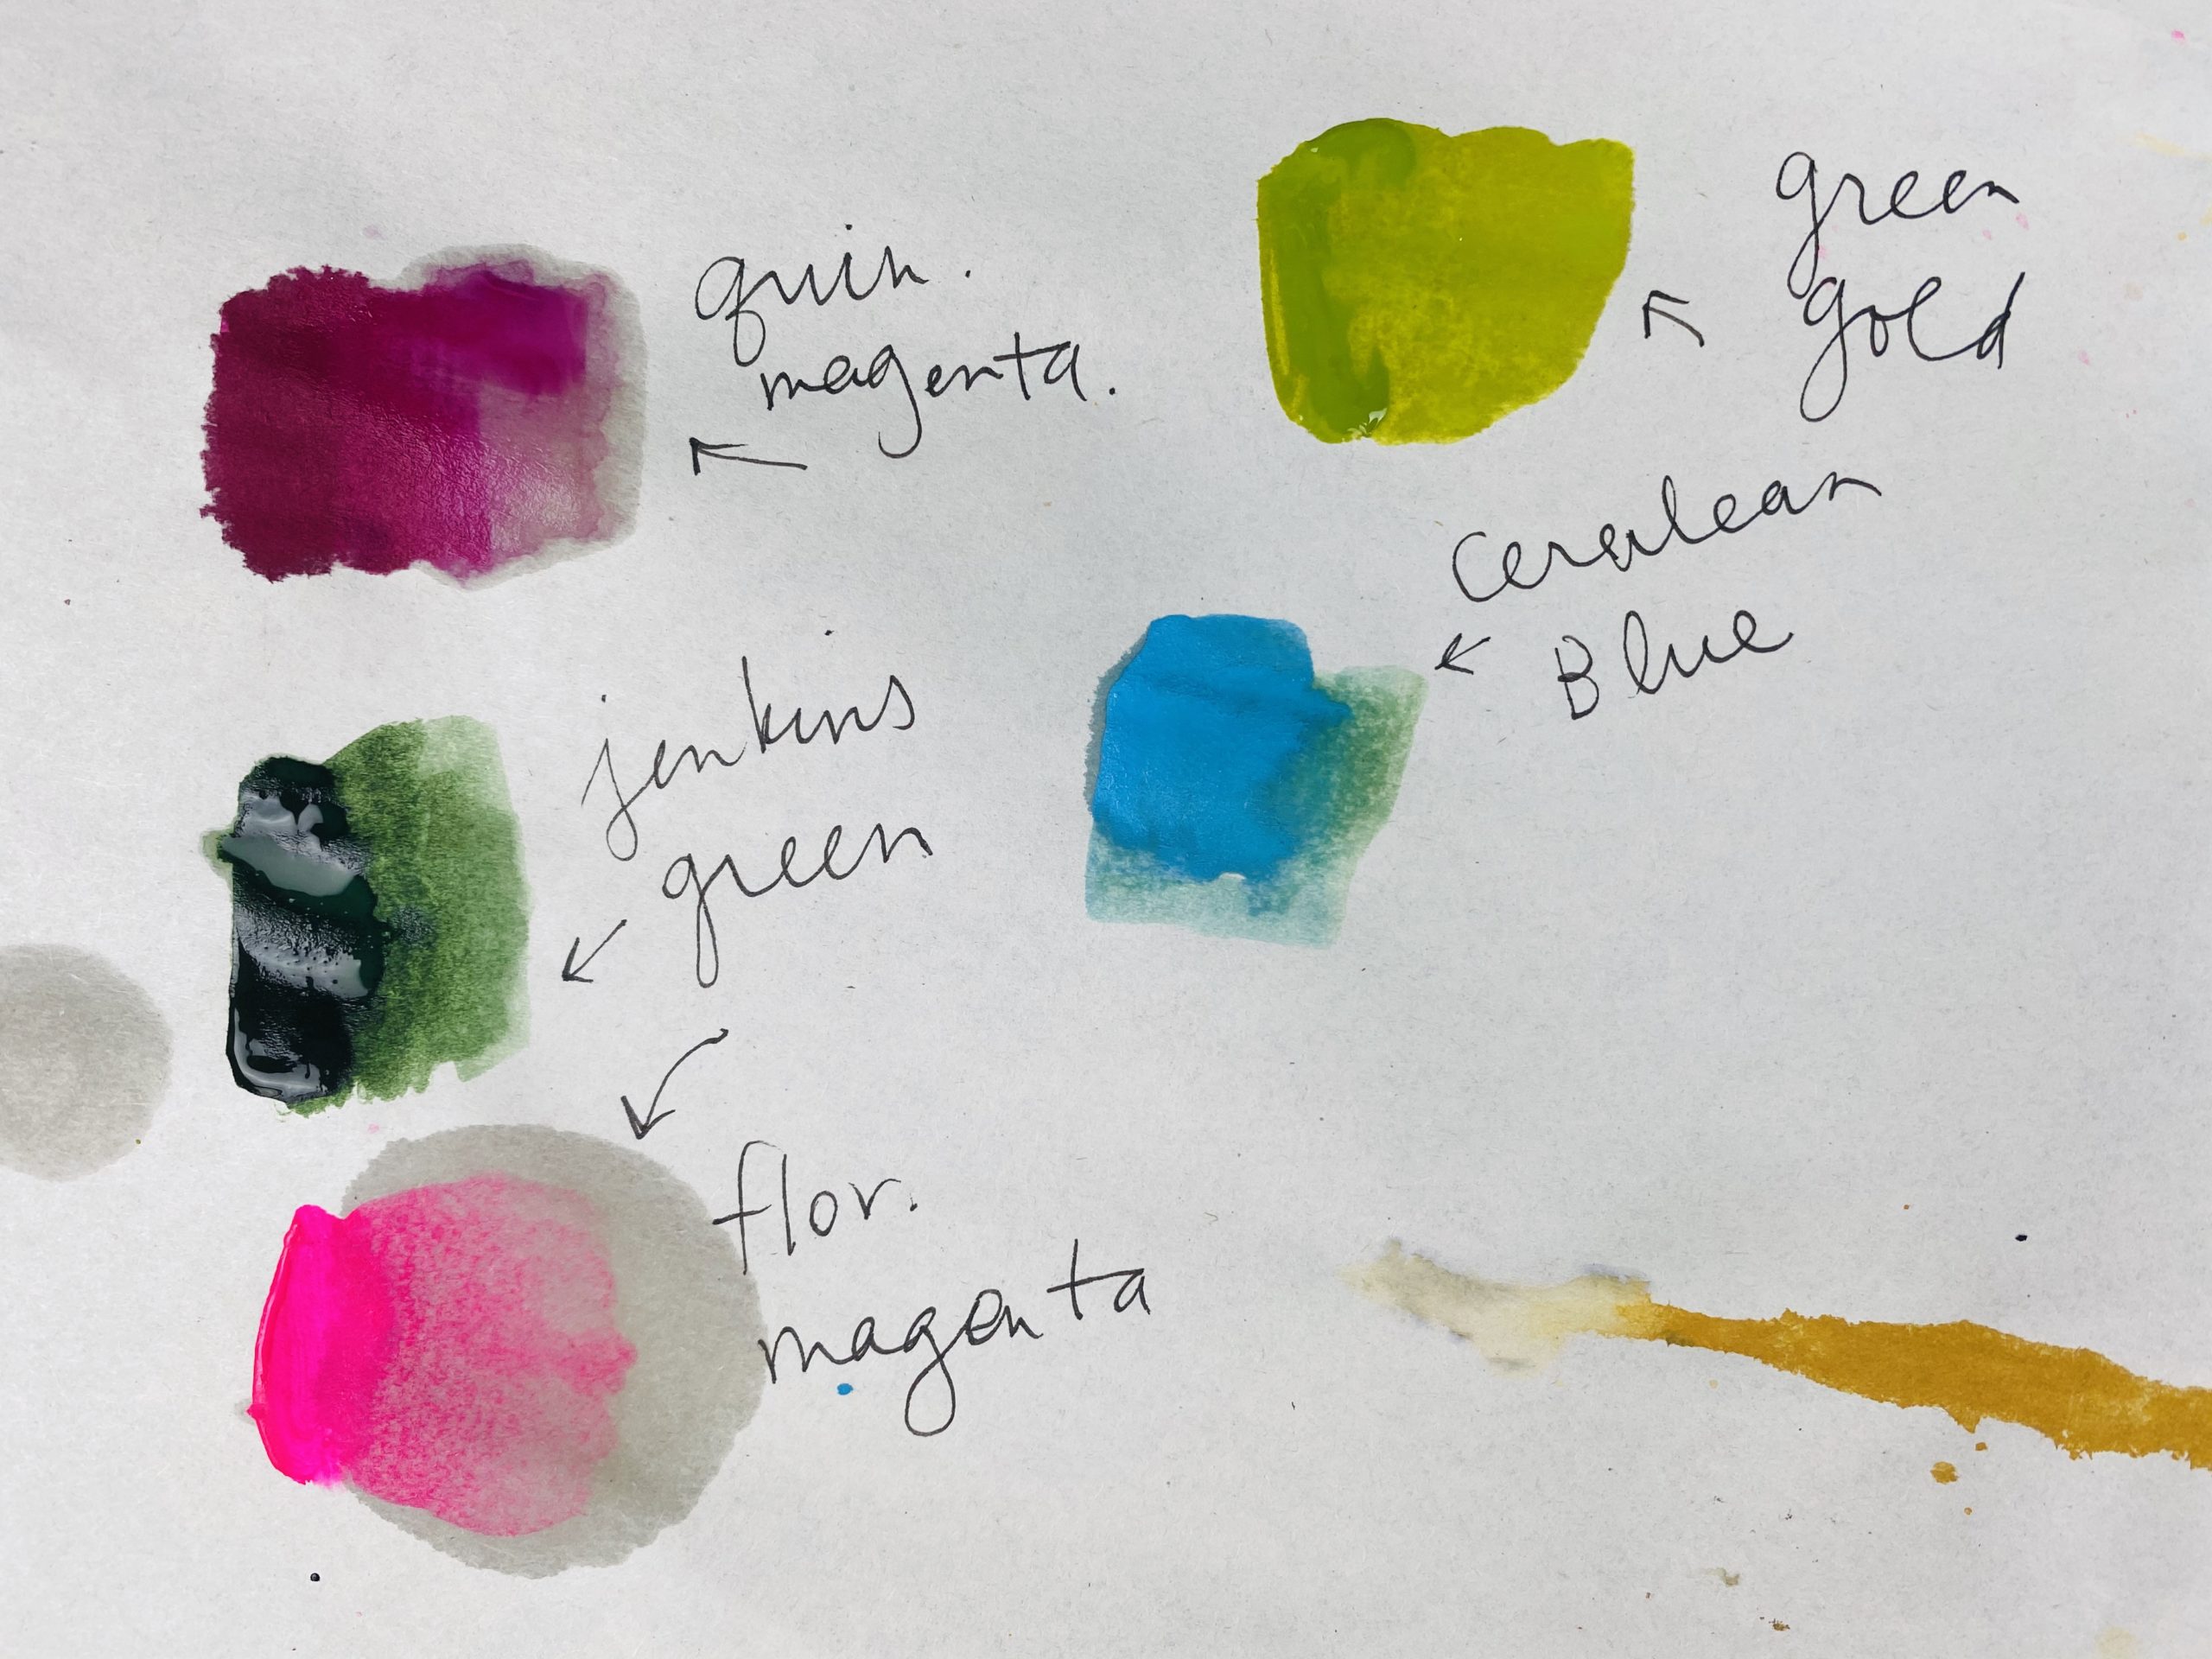 quin.
magenta.
green
gold
cerulean
Blue
jenkins
green
flor.
magenta